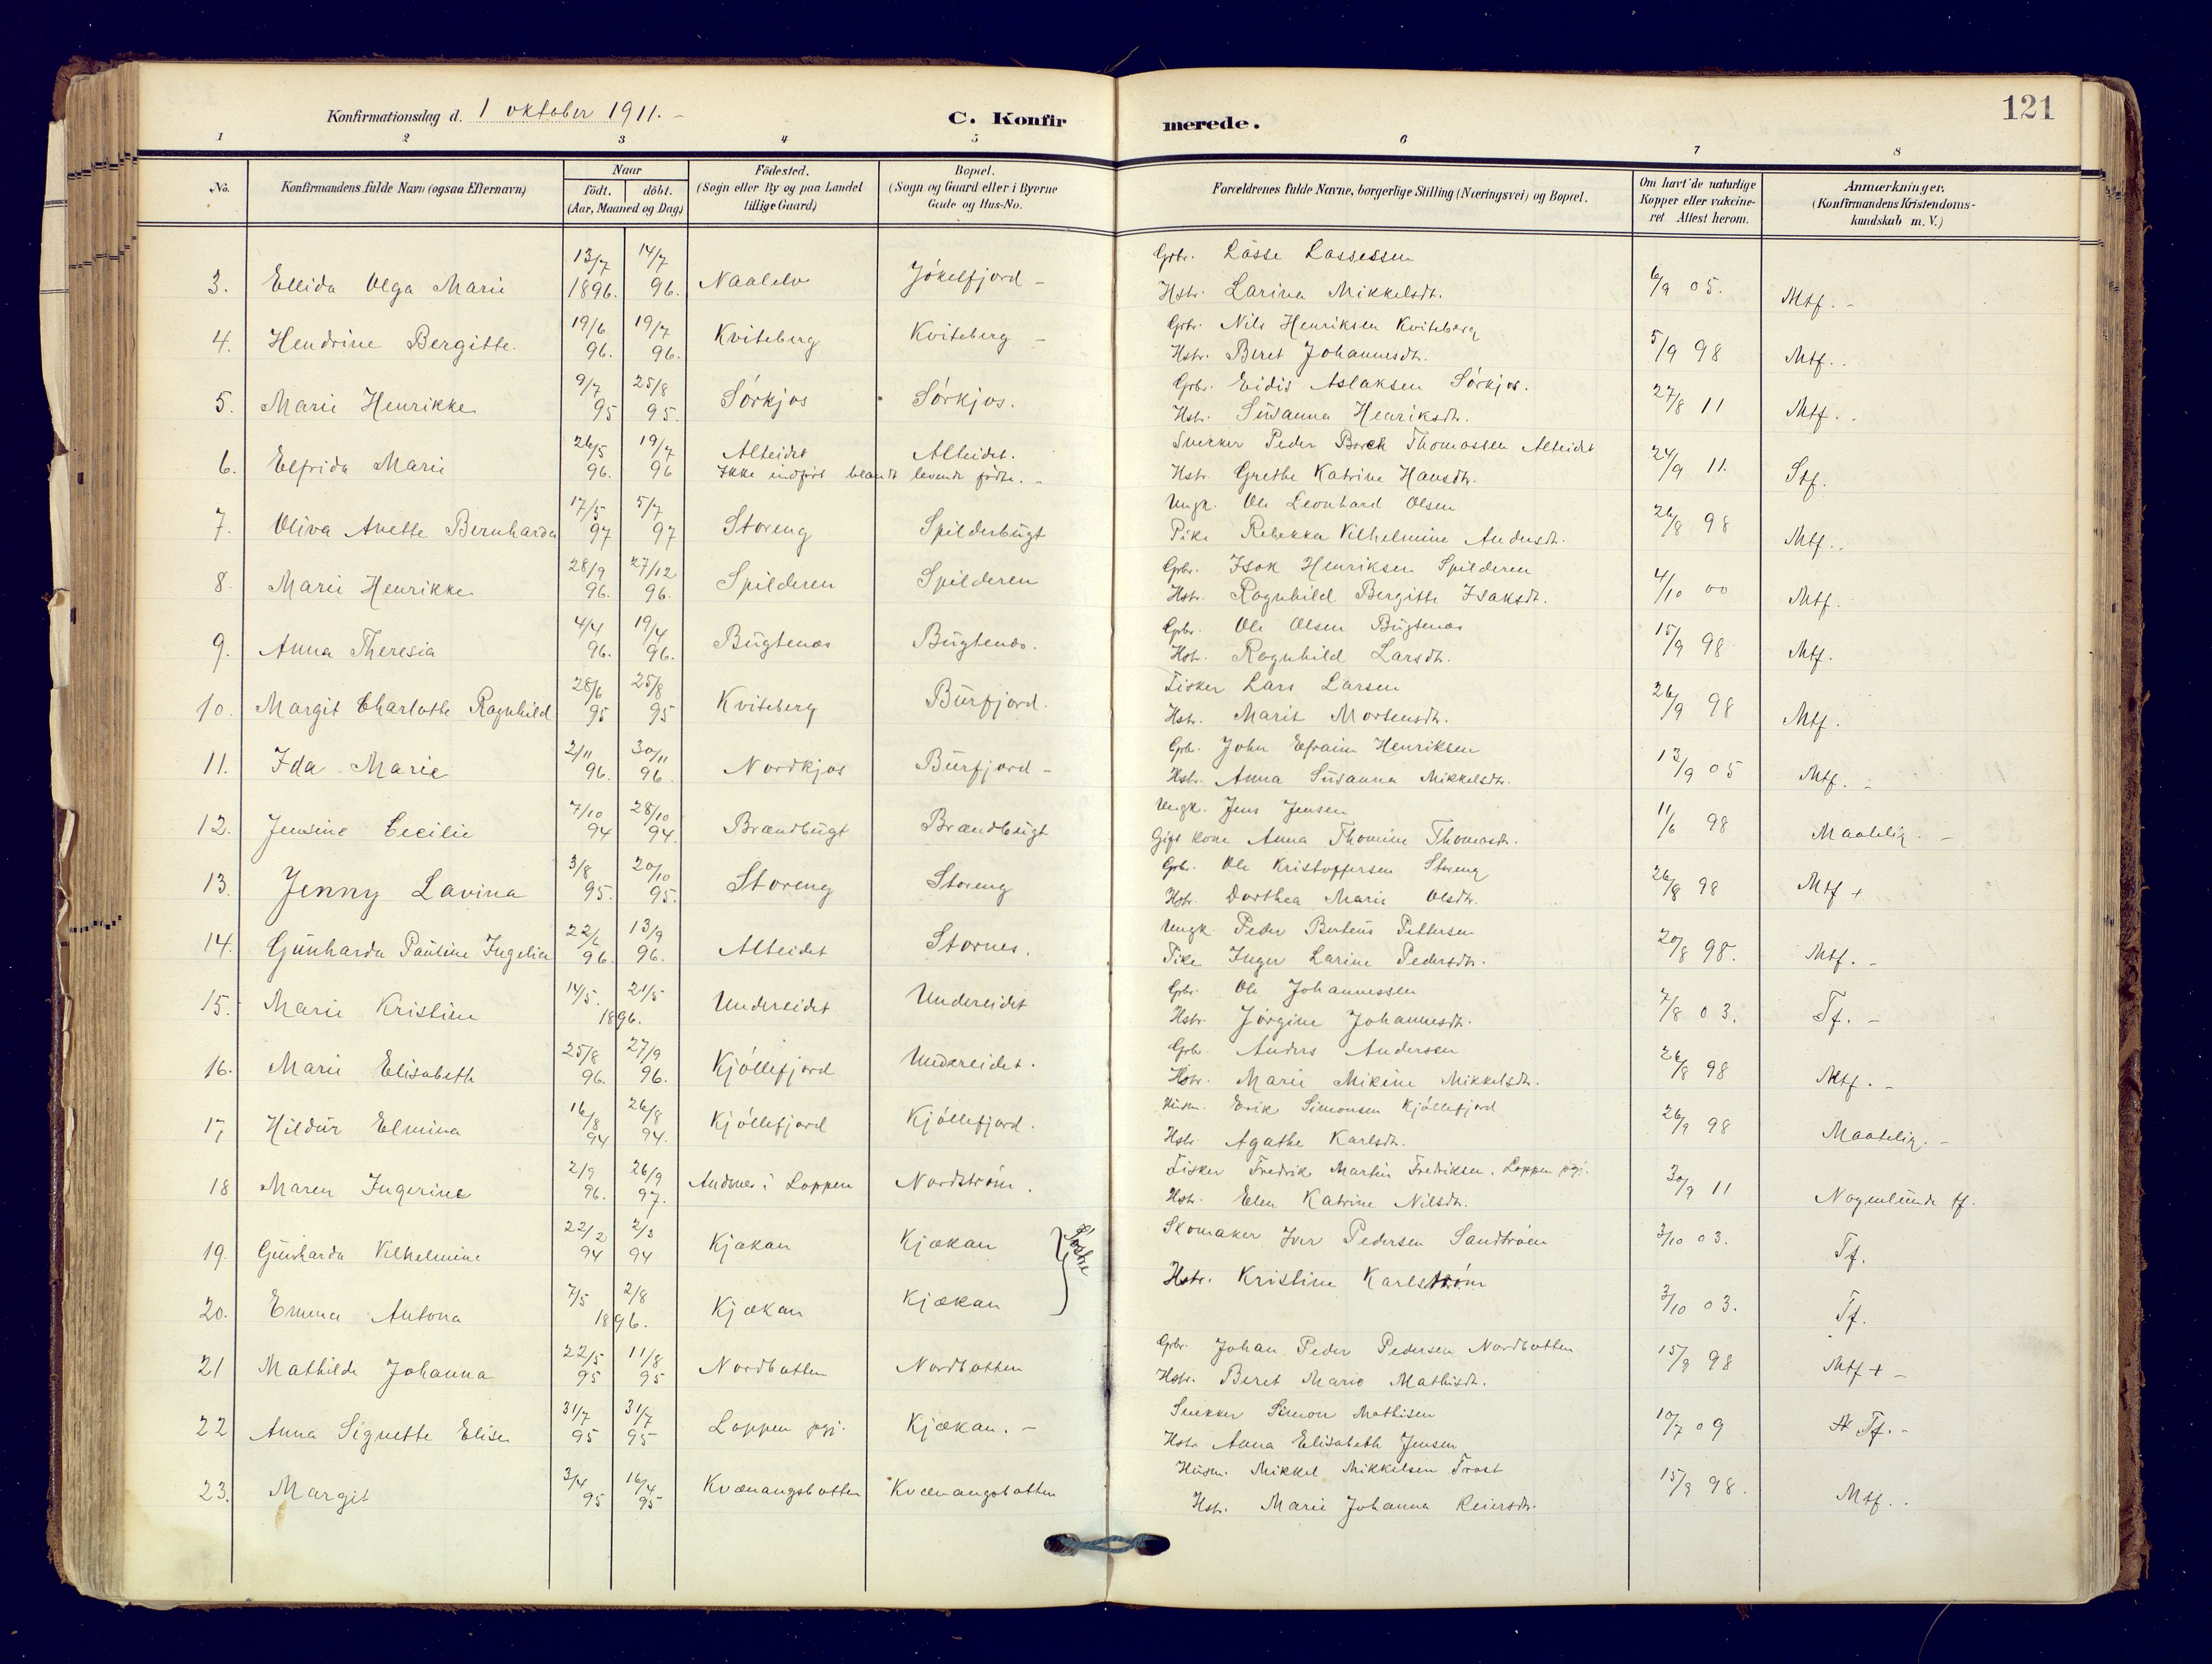 121
Konfirmationsdag d. 1 oktober 1911. -
C. Konfirmerede.
1 2 3 4 5 6 7 8
No. Konfirmandens fulde Navn (ogsaa Efternavn) Naar født. døbt. (Aar, Maaned og Dag) Fødested. (Sogn eller By og paa Landet tillige Gaard) Bopæl. (Sogn og Gaard eller i Byerne Gade og Hus-No. Forældrenes fulde Navne, borgerlige Stilling (Næringsvei) og Bopæl. Om havt de naturlige Kopper eller vakcineret Attest herom. Anmærkninger. (Konfirmandens Kristendomskundskab m. V.)
3. Ellida Olga Marie 13/7 1896. 14/7 96. Naalelv Jökelfjord - Gbr. Lasse Lassessen
Hstr. Larina Mikkelsdt. 6/9 05. Mtf. -
4. Hendrine Bergitte. 19/6 96. 19/7 96. Kviteberg Kviteberg - Gbr. Nils Henriksen Kviteberg
Hstr. Beret Johannesdt. 5/9 98 Mtf. -
5. Marie Henrikke 9/7 95 25/8 95. Sörkjos Sörkjos. Gbr. Eidis Aslaksen Sörkjos.
Hstr. Süsanna Henriksdt. 27/8 11 Mtf. -
6. Elfrida Marie 26/5 96. 19/7 96 Alteidet Alteidet. Snekker Peder Borch Thomassen Alteidet
Ikke indført blandt levende fødte. - Hstr. Grethe Katrine Hansdt. 24/9 11. Stf.
7. Oliva Anette Bernharda 17/5 97 5/7 97 Storeng Spilderbügt Ungk. Ole Leonhard Olsen
Pike Rebekka Vilhelmine Andersdt. 26/8 98 Mtf. -
8. Marie Henrikke 28/9 96. 27/12 96. Spilderen Spilderen Gbr. Isak Henriksen Spilderen
Hstr. Ragnhild Bergitte Isaksdt. 4/10 00 Mtf.
9. Anna Theresia 4/4 96. 19/4 96. Bügtenæs Bügtenæs. Gbr. Ole Olsen Bügtenæs
Hstr. Ragnhild Larsdt. 15/9 98 Mtf.
10. Margit Charlotte Ragnhild 28/6 95 25/8 95 Kviteberg Bürfjord. Fisker Lars Larsen
Hstr. Marit Mortensdt. 26/9 98 Mtf.
11. Ida Marie 2/11 96. 30/11 96. Nordkjos Bürfjord - Gbr. John Efraim Henriksen
Hstr. Anna Süsanna Mikkelsdtr. 13/9 05 Mtf. -
12. Jensine Cecilie 7/10 94 28/10 94. Brændbügt Brændbügt Ungk. Jens Jensen
Gift kone Anna Thomine Thomasdt. 11/6 98 Maatelig. -
13. Jenny Lavina 3/8 95. 20/10 95. Storeng Storeng Gbr. Ole Kristoffersen Storeng
Hstr. Dorthea Marie Olsdtr. 26/8 98 Mtf +
14. Günharda Paüline Ingelia 22/6 96. 13/9 96. Alteidet Stornes. Ungk. Peder Berteüs Pettersen
Pike Inger Larine Pedersdtr. 20/8 98. Mtf. -
15. Marie Kristine 14/5. 21/5 1896. Undereidet Undereidet Gbr. Ole Johannessen
Hstr. Jörgine Johannesdt. 7/8 03. Tf. -
16. Marie Elisabeth 25/8 96. 27/9 96. Kjöllefjord Undereidet. Gbr. Anders Andersen
Hstr. Marie Mikine Mikkelsdtr. 26/8 98 Mtf. -
17 Hildür Elmina 16/8 94 26/8 94. Kjöllefjord Kjöllefjord. Hüsm. Erik Simonsen Kjöllefjord
Hstr Agathe Karlsdt. 26/9 98 Maatelig. -
18 Maren Ingerine 2/9 96. 26/9 97. Andsnes i Loppen Nordström. Fisker Fredrik Martin Fredriksen, Loppen pgj.
Hstr. Elen Katrine Nilsdt. 30/9 11 Nogenlünde tf.
19. Günharda Vilhelmine 22/2 94 2/3 94 Kjækan Kjækan Søstre Skomaker Iver Pedersen Sandtrøen
3/10 03. Tf.
20. Emma Antona 7/5 2/8 1896. Kjækan Kjækan Hstr. Kristine Karlström
3/10 03. Tf.
21 Mathilde Johanna 22/5 95 11/8 95 Nordbotten Nordbotten Gbr. Johan Peder Pedersen Nordbotten
Hstr. Beret Marie Mathisdt. 15/9 98 Mtf + -
22 Anna Signette Elise 31/7 95 31/7 95 Loppen pgj. Kjækan. - Snekker Simon Mathisen
Hstr Anna Elisabeth Jensen 10/7 09 Tf. -
23. Margit 3/4 95 16/4 95 Kvænangsbotten Kvænangsbotten Hüsm. Mikkel Mikkelsen Trast
Hstr. Marie Johanna Reiersdt. 15/9 98. Mtf. -